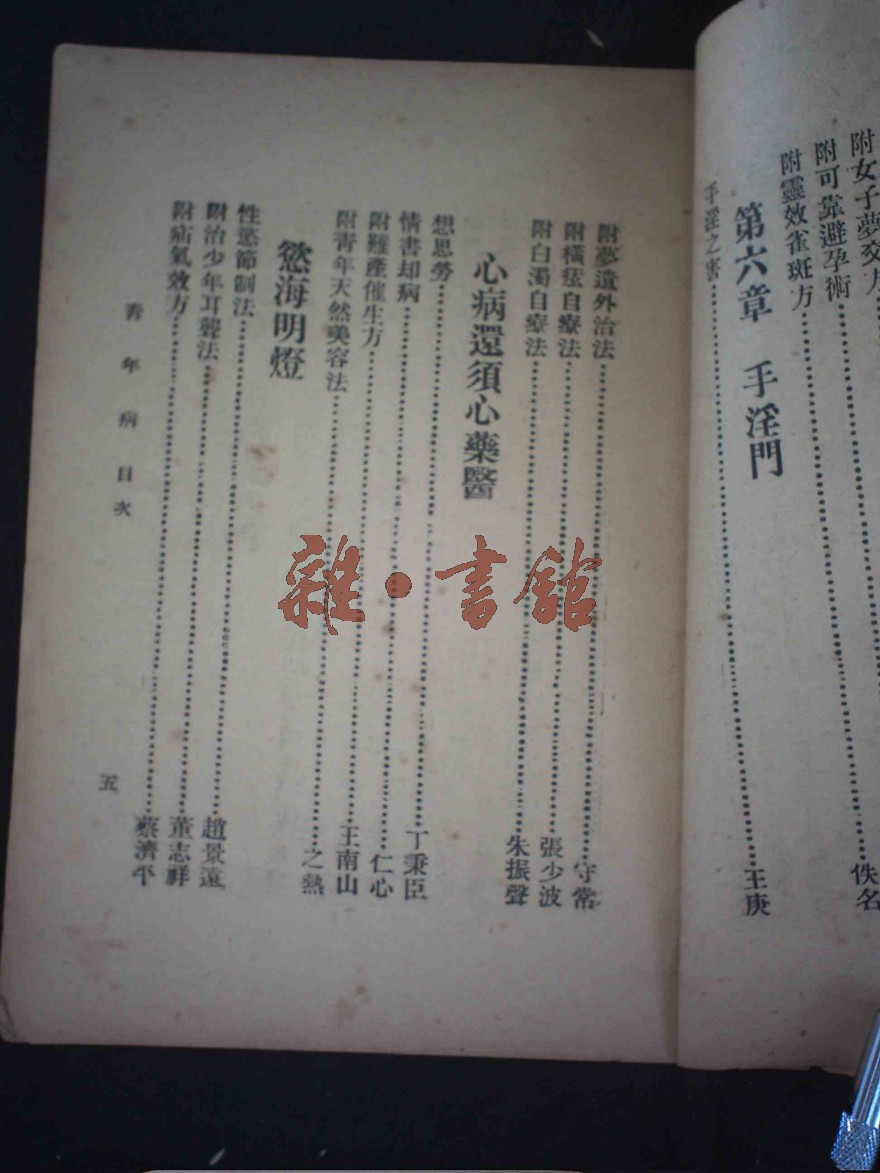 附女子夢交方
附可靠避孕術……佚名
附靈效雀斑方
第六章 手淫門
手淫之害……王庚
附夢遺外治法……守常
附橫痃自療法……張少波
附白濁自療法……朱振聲
心病還須心藥醫
想思勞……丁秉臣
情書却病……仁心
附難產催生方……王南山
附青年天然美容法……之熱
慾海明燈
性慾節制法……趙景遠
附治少年耳聾法……董志祥
附疝氣效方……蔡濟平
青年病目次
五
雜·書館